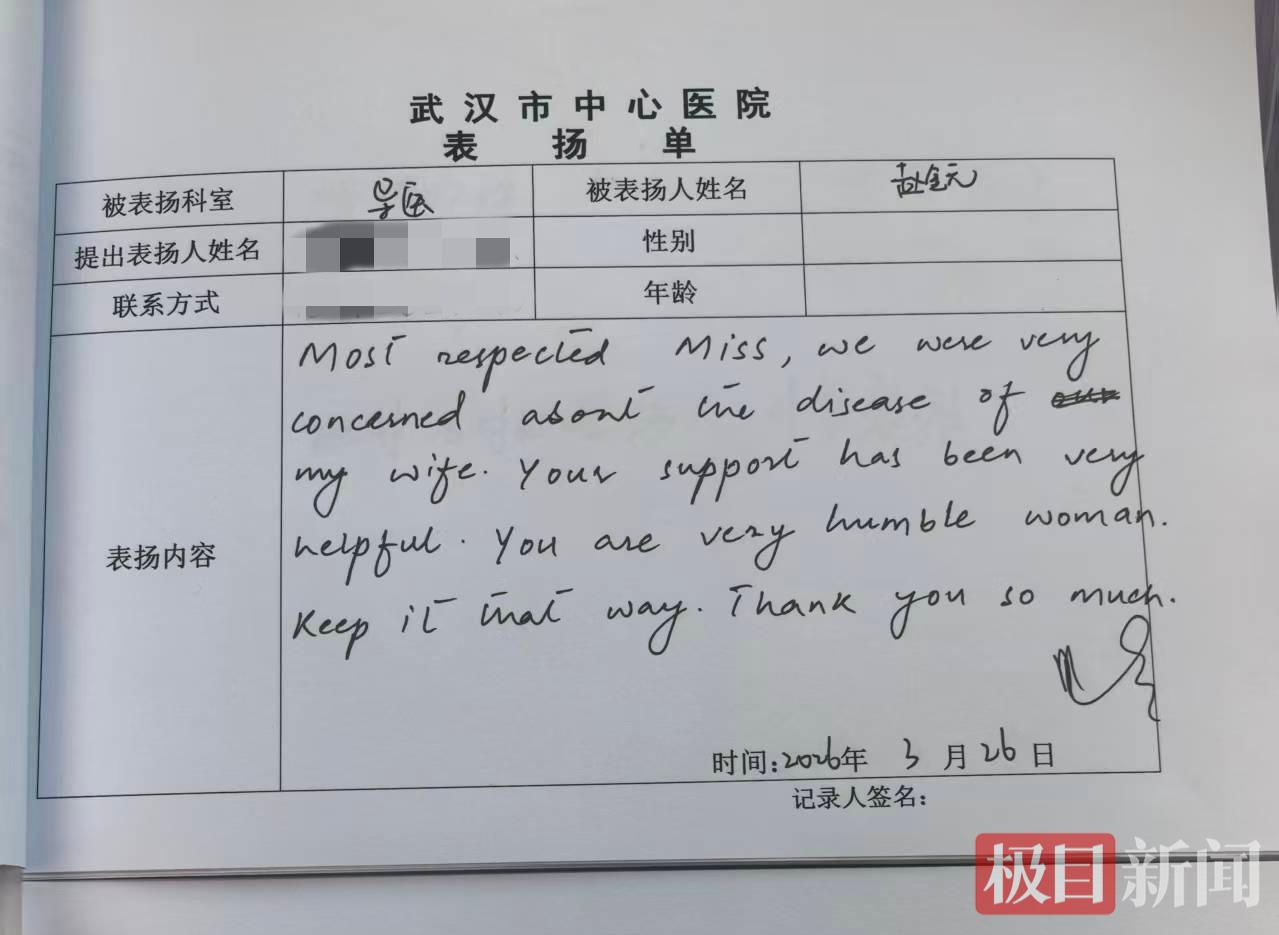 武汉市中心医院
表扬单
被表扬科室 导医 被表扬人姓名 赵金元
提出表扬人姓名 性别
联系方式 年龄
表扬内容
Most respected Miss, we were very
concerned about the disease of
my wife. Your support has been very
helpful. You are very humble woman.
Keep it that way. Thank you so much.
时间:2026年 3 月 26 日
记录人签名:
极目新闻